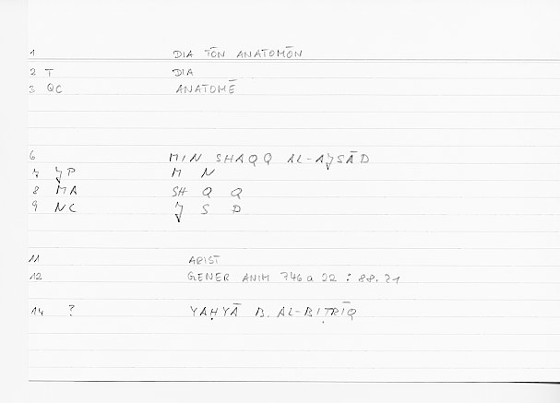 1 DIA TŌN ANATOMŌN
2 T DIA
3 QC ANATOMĒ
6 MIN SHAQQ AL-AJSĀD
7 JP M N
8 MA SH Q Q
9 NC J S D
11 ARIST
12 GENER ANIM 746a 22 : 88.21
14 ? YAḤYĀ B. AL-BIṬRĪQ